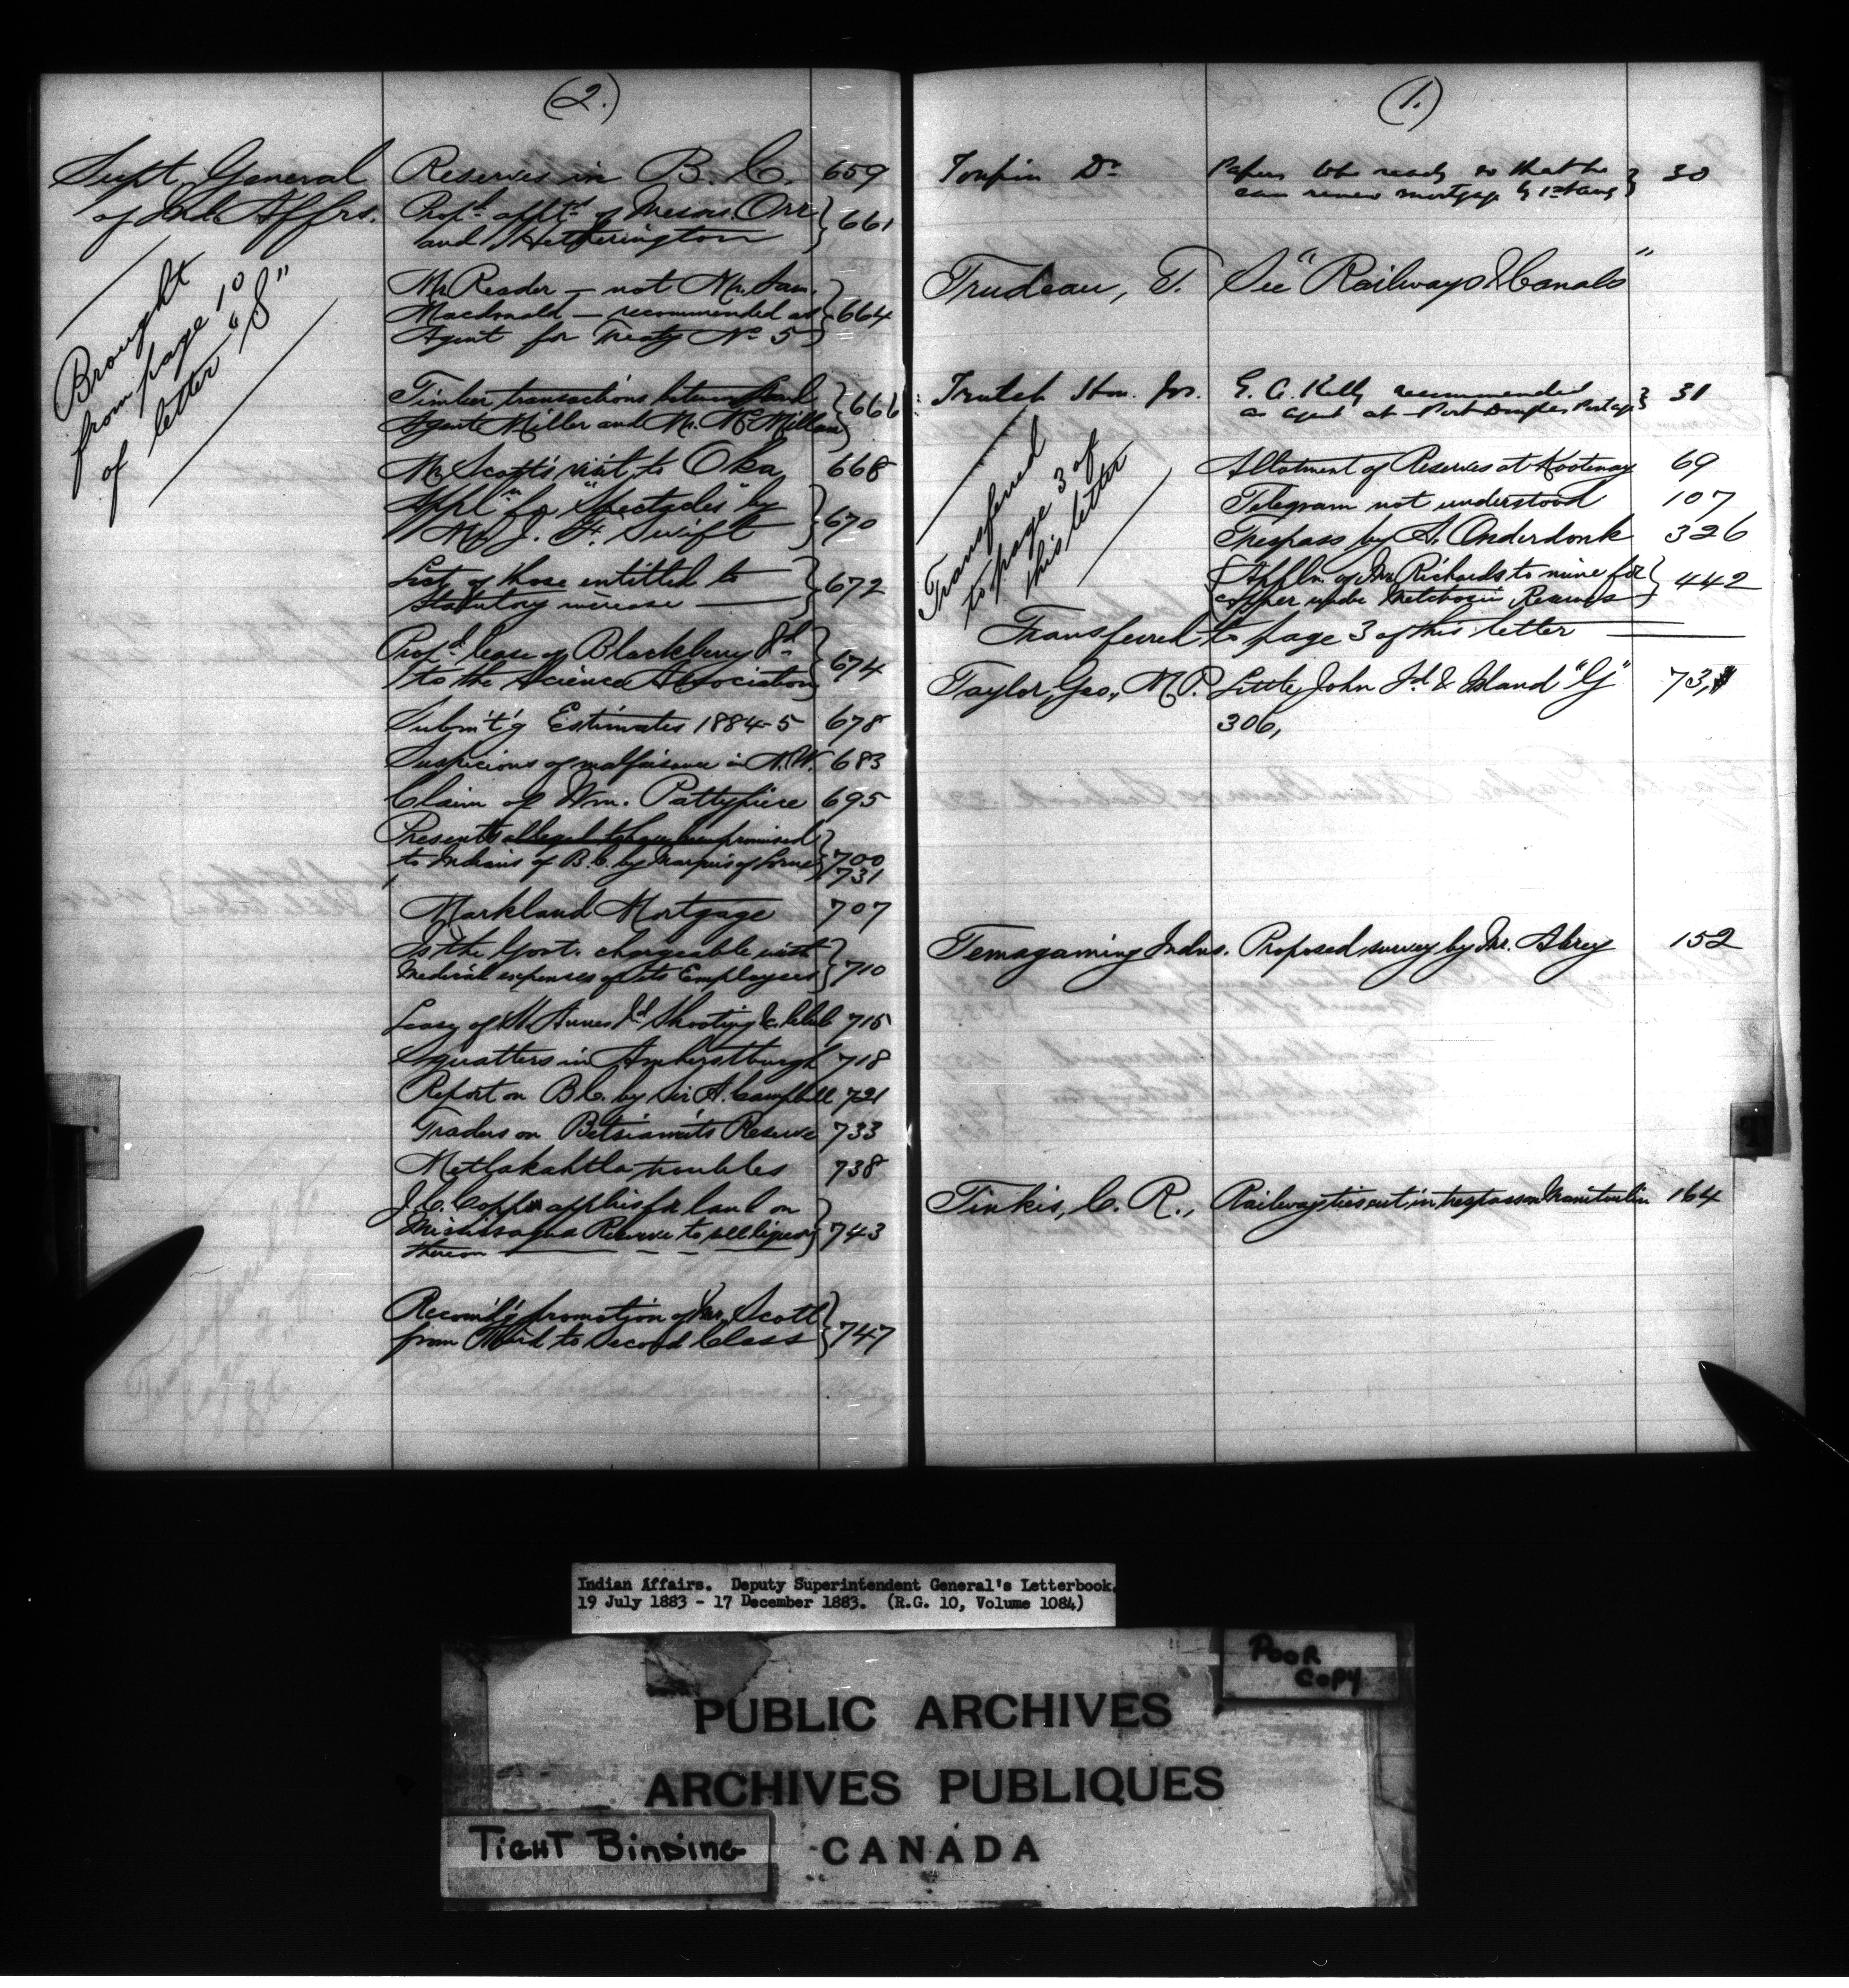 (2.)
Supt. General
of Ind. Affrs.
Brought
from page 10
of letter "S"
Reserves in B. C. 659
Prop'd appt's of Messrs. Orr
and Hetherington 661
Mr. Reader — not Mr. Sam.
Macdonald — recommended as 664
Agent for Treaty No 5
Timber transactions between Land 666
Agent Miller and Mr. McMillan
Mr Scott's visit to Oka 668
Appl'n for "Spectacles" by
Mr. J. F. Swift 670
List of those entitled to 672
Statutory increase
Prop'd lease of Blackberry I'd
to the Science Association 674
Subm't'g Estimates 1884-5 678
Suspicions of malfeisance in N.W. 683
Claim of Wm. Pattypiece 695
Presents alleged to have been promised
to Indians of B.C. by Marquis of Lorne 700
731
Markland Mortgage 707
Is the Govt. chargeable with
Medical expenses of its Employees 710
Leasg of St Annes I'd Shooting &c. Club 715
Squatters in Amherstburgh 718
Report on B.C. by Sir A. Campbell 721
Traders on Betsiamits Reserve 733
Metlakahtla troubles 738
J.C. applies for land on
Mississagua Reserve to sell liquor 743
thereon
Recom'd'g promotion of Mr. Scott
from Third to Second Class 747
(1.)
Toupin Dr Papers to be ready so that he 30
can renew mortgage by 1st Aug
Trudeau, T. See "Railways & Canals"
Trutch Hon. Jos. G. C. Kelly recommended 31
as agent at Port Douglas Portage
Transferred
to page 3 of
this letter
Allotment of Reserves at Kootenay 69
Telegram not understood 107
Trespass by A. Onderdonk 326
Appln. of Mr. Richards to mine for 442
copper under Metchosin Reserve
Transferred to page 3 of this letter
Taylor, Geo., M.P. Little John I'd & Island "G" 73,
306,
Temagaming Indns. Proposed survey by Mr. Abrey 152
Tinkis, C. R., Railway ties cut in trespass on Manitoulin 164
Indian Affairs. Deputy Superintendent General's Letterbook,
19 July 1883 - 17 December 1883. (R.G. 10, Volume 1084)
POOR
COPY
PUBLIC ARCHIVES
ARCHIVES PUBLIQUES
CANADA
TIGHT BINDING